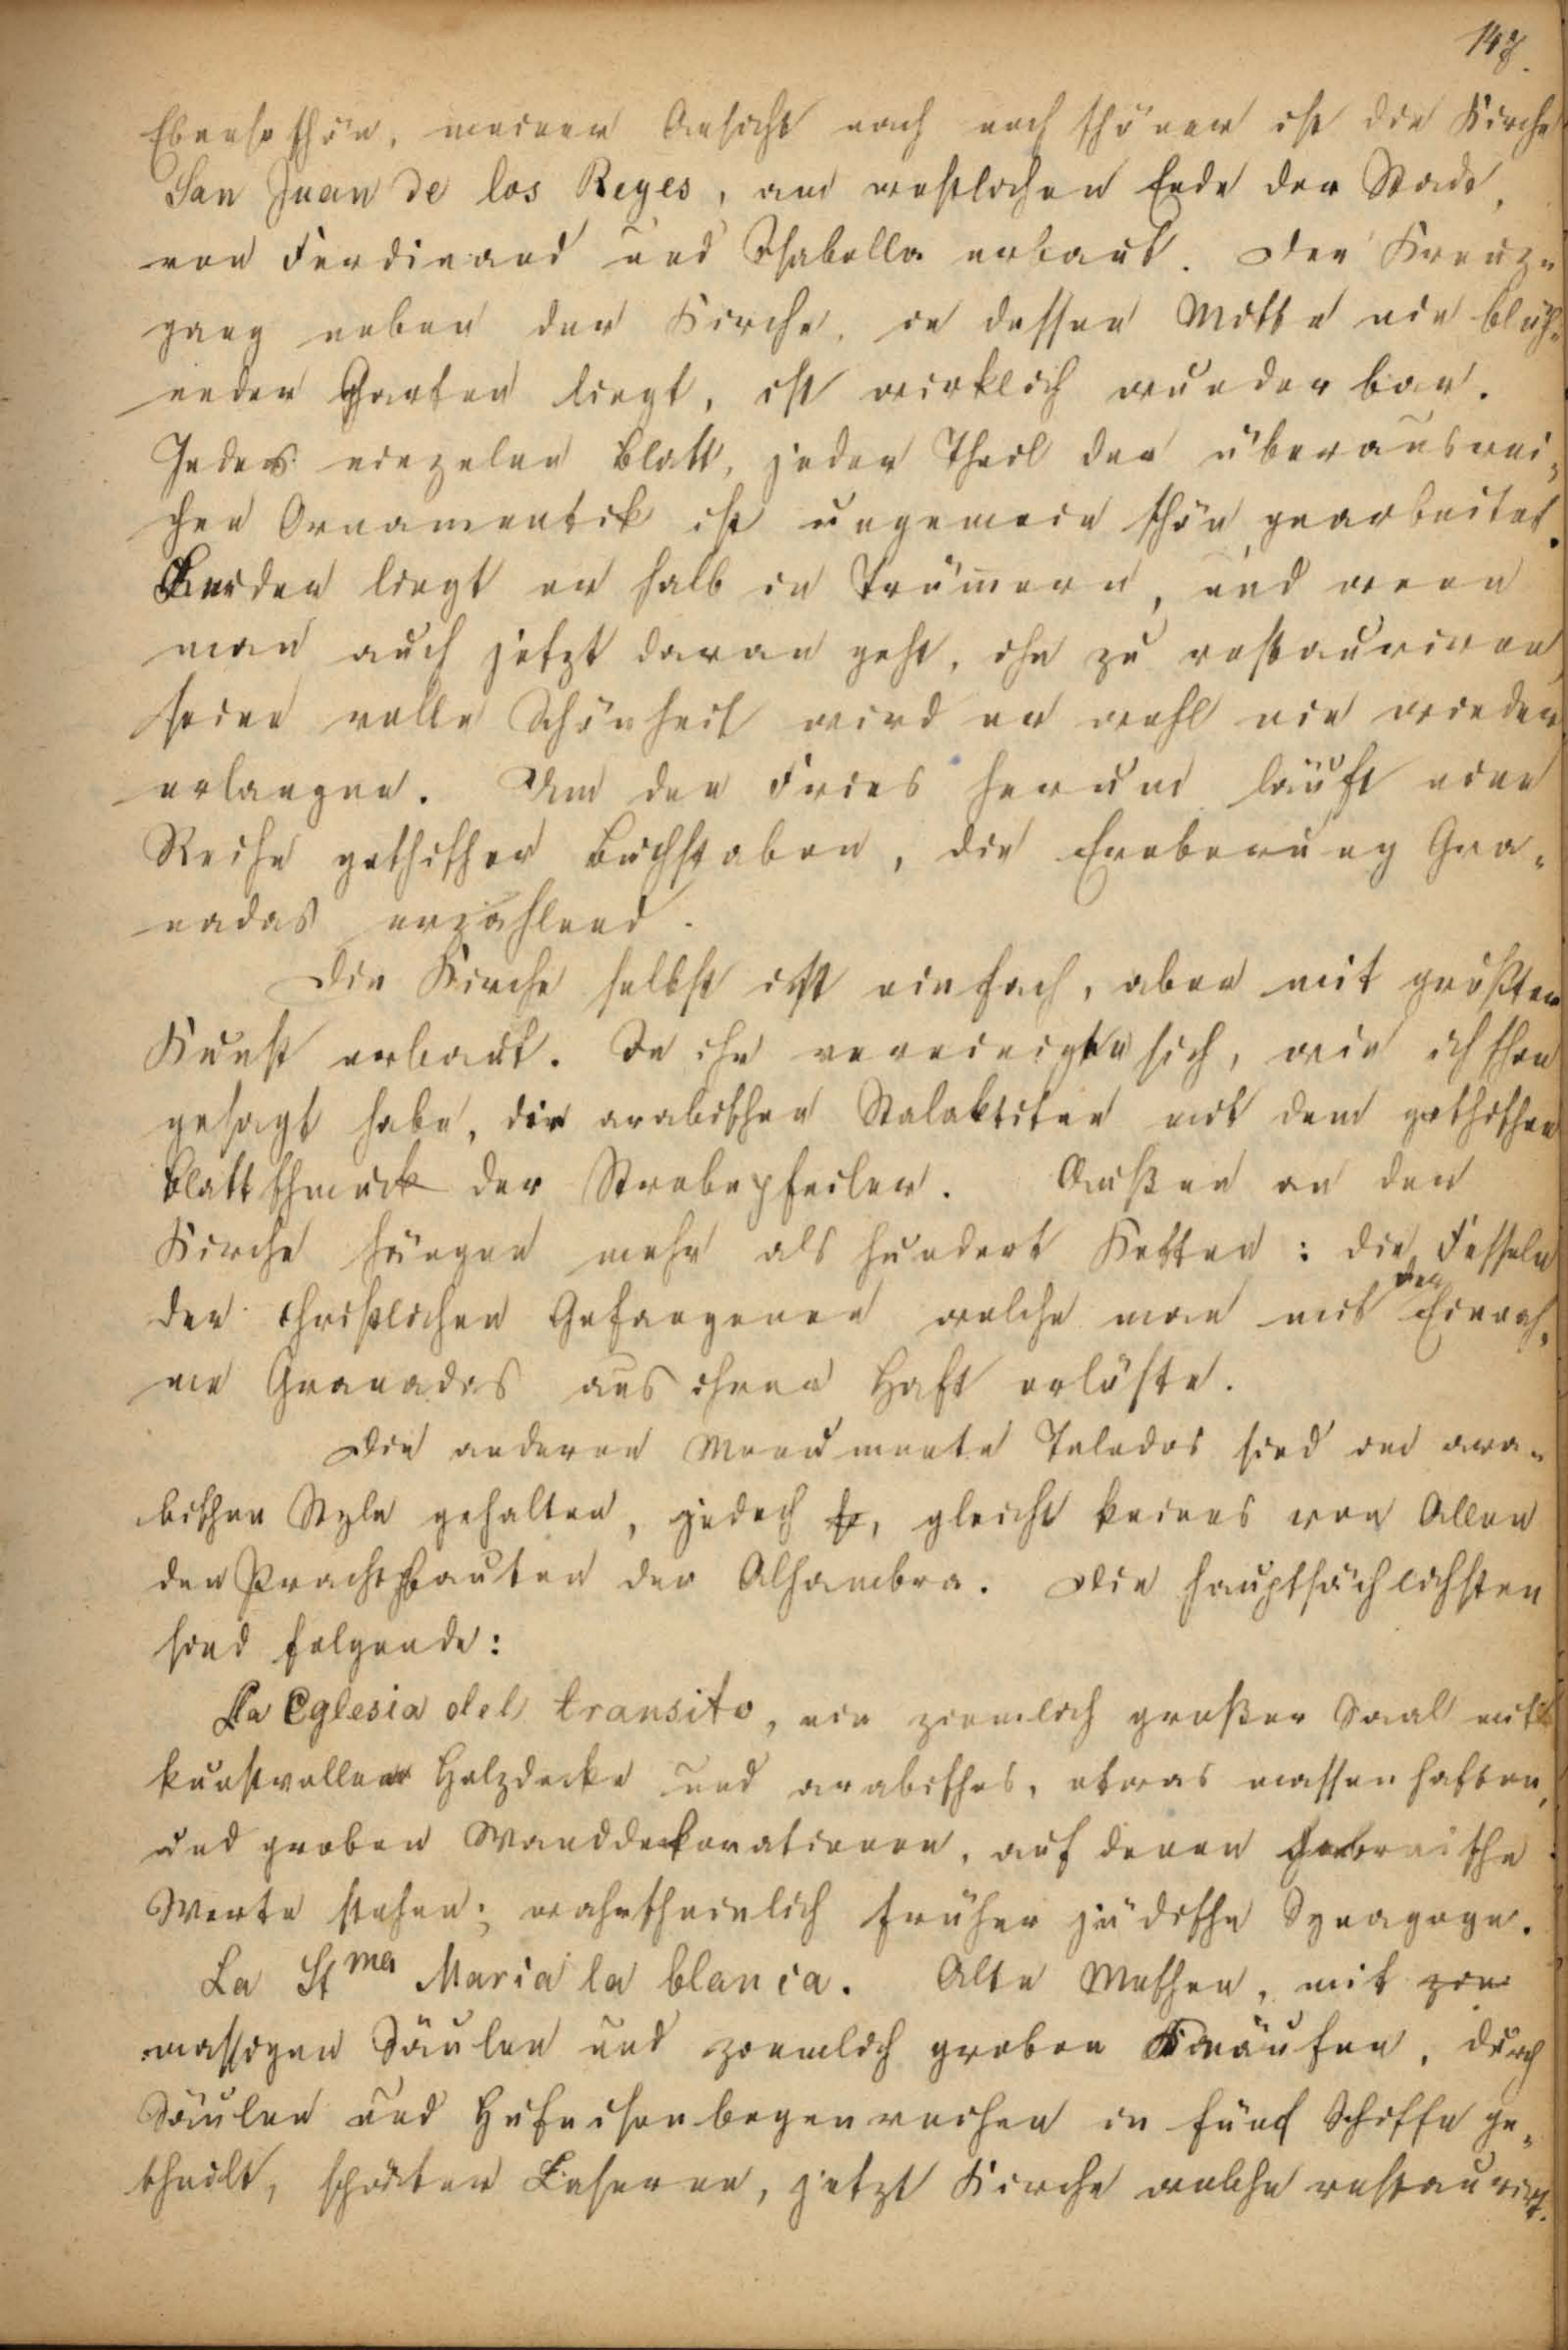 147.
Ebenso schön, meiner Ansicht nach noch schöner ist die Kirche
San Juan de los Reyes, am westlichen Ende der Stadt,
von Ferdinand und Isabella erbaut. Der Kreuz-
gang neben der Kirche, in dessen Mitte ein blüh-
ender Garten liegt, ist wirklich wunderbar.
Jedes einzelne Blatt, jeder Theil der überausrei-
chen Ornamentik ist ungemein schön gearbeitet.
Leider liegt er halb in Trümmern, und wenn
man auch jetzt daran geht, ihn zu restauriren,
seine volle Schönheit wird er wohl nie wieder
erlangen. Um den Fries herum läuft eine
Reihe gothischer Buchstaben, die Eroberung Gra-
nadas erzählend.
Die Kirche selbst ist einfach, aber mit größter
Kunst erbaut. In ihr vereinigten sich, wie ich schon
gesagt habe, die arabischen Stalaktiten mit dem gothischen
Blattschmuck der Strebepfeiler. Außen an der
Kirche hängen mehr als hundert Ketten: die Fesseln
der christlichen Gefangenen welche man mit der Einnah-
me Granadas aus ihrer Haft erlöste.
Die anderen Monumente Toledos sind im ara-
bischen Style gehalten, jedoch gleicht keines von Allen
den Prachtbauten der Alhambra. Die hauptsächlichsten
sind folgende:
La Eglesia del transito, ein ziemlich großer Saal mit
kunstvoller Holzdecke und arabischen, etwas massenhaften,
und groben Wanddekorationen, auf denen hebräische
Worte stehen; wahrscheinlich früher jüdische Synagoge.
La St ma Maria la blanca. Alte Moschee, mit
massigen Säulen und ziemlich groben Knäufen, durch
Säulen und Hufeisenbogenreihen in fünf Schiffe ge-
theilt, später Caserne, jetzt Kirche welche restaurirt.